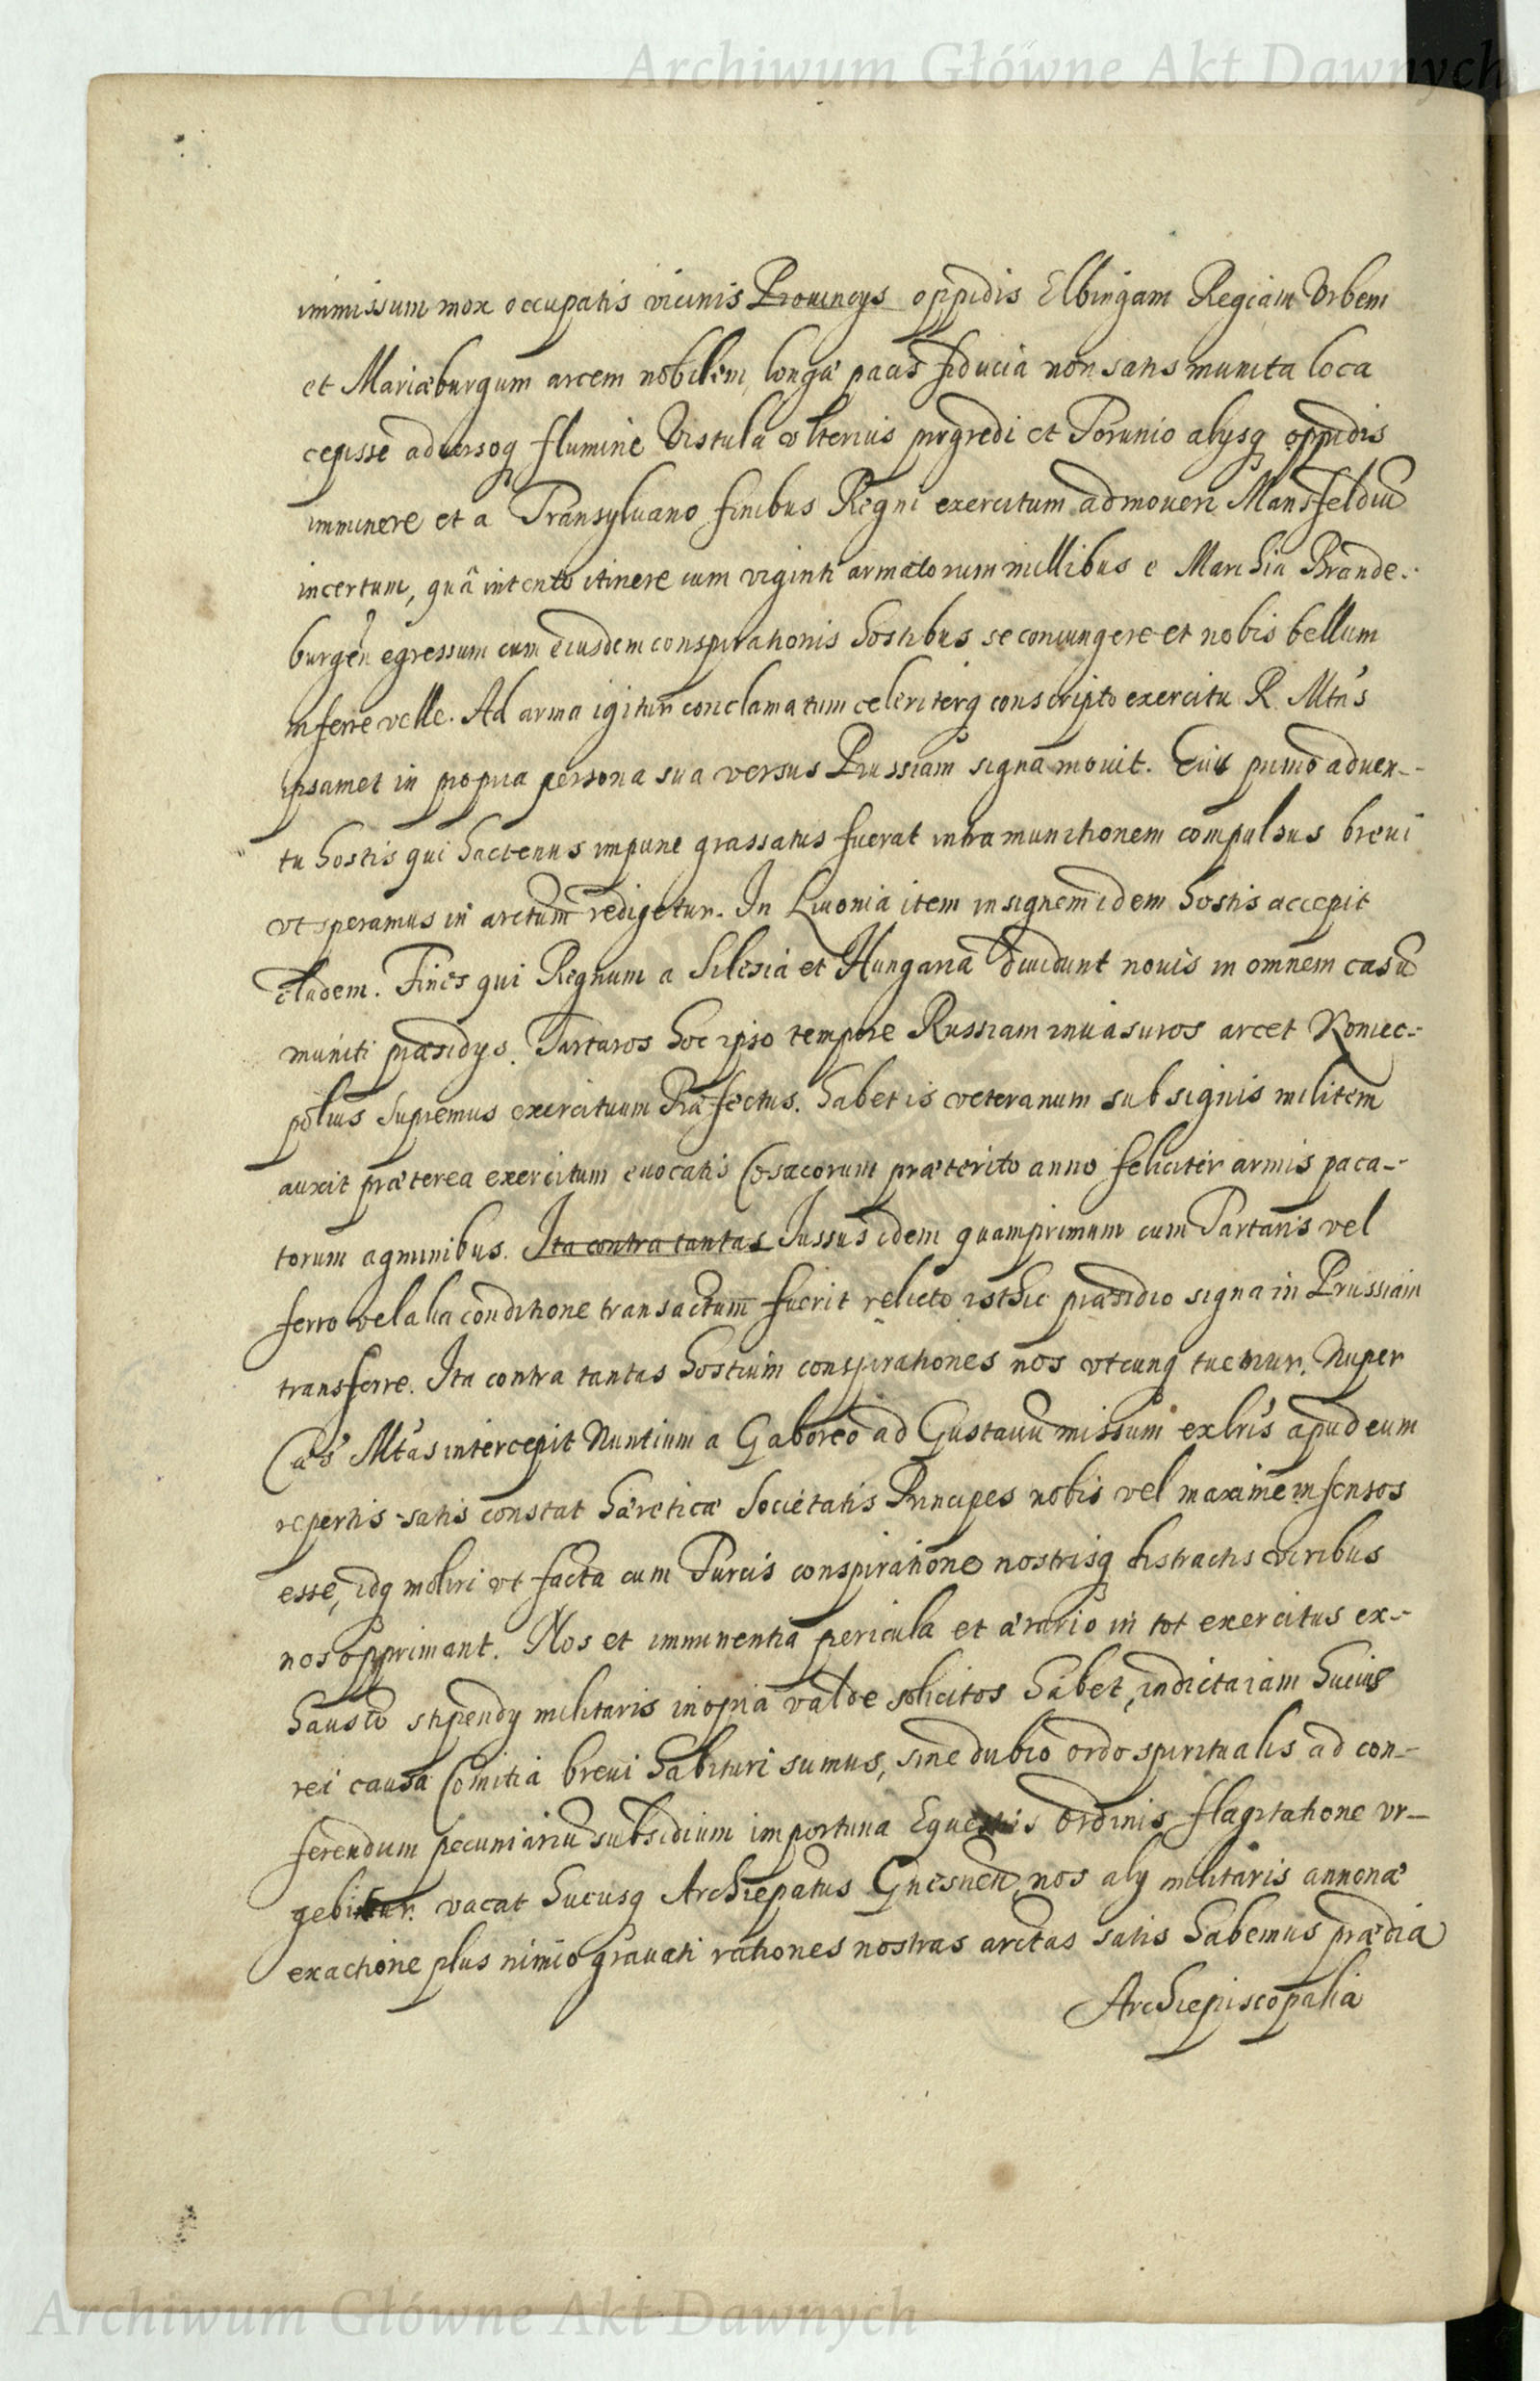 Archiwum Główne Akt Dawnych
immissum mox occupatis vicinis Prouincys oppidis Elbingam Regiam Vrbem
et Mariæburgum arcem nobilem, longæ pacis fiducia non satis munita loca
cepisse aduersoq flumine Vistula vlterius progredi et Torunio alysq oppidis
imminere et a Transyluano finibus Regni exercitum admoueri Mansfeldiū
incertum, quâ intento itinere cum viginti armatorum millibus e Marchia Brande-
burgēn egressum cum eiusdem conspirationis hostibus se coniungere et nobis bellum
inferre velle. Ad arma igitur conclamatum celeriterq conscripto exercitu R. Mtas
ipsamet in propria persona sua versus Prussiam signa mouit. Eius primo aduen-
tu hostis qui hactenus impune grassatus fuerat intra munitionem compulsus breui
vt speramus in arctum redigetur. In Liuonia item insignem idem hostis accepit
cladem. Fines qui Regnum a Silesia et Hungaria diuidunt nouis in omnem casū
muniti præsidys. Tartaros hoc ipso tempore Russiam inuasuros arcet Koniec-
polius Supremus exercituum Præfectus. habet is veteranum sub signis militem
auxit præterea exercitum euocatis Cosacorum præterito anno feliciter armis paca-
torum agminibus. Ita contra tantas Iussus idem quamprimum cum Tartaris vel
ferro vel alia conditione transactum fuerit relicto isthic præsidio signa in Prussiam
transferre. Ita contra tantas hostium conspirationes nos vtcunq tuemur. Nuper
Cæs Mtas intercepit Nuntium a Gaboreo ad Gustauū missum ex lris apud eum
repertis satis constat hæreticæ Societatis Principes nobis vel maxime infensos
esse, idq moliri vt facta cum Turcis conspiratione nostrisq distractis viribus
nos opprimant. Nos et imminentia pericula et ærario in tot exercitus ex-
hausto stipendy militaris inopia valde solicitos habet, indicta iam huius
rei causa Comitia breui habituri sumus, sine dubio ordo spiritualis ad con-
ferendum pecuniariū subsidium importuna Equestris Ordinis flagitatione vr-
gebitur. vacat hucusq Archiepatus Gnesnen, nos aly militaris annonæ
exactione plus nimio grauati rationes nostras arctas satis habemus prædia
Archiepiscopalia
Archiwum Główne Akt Dawnych